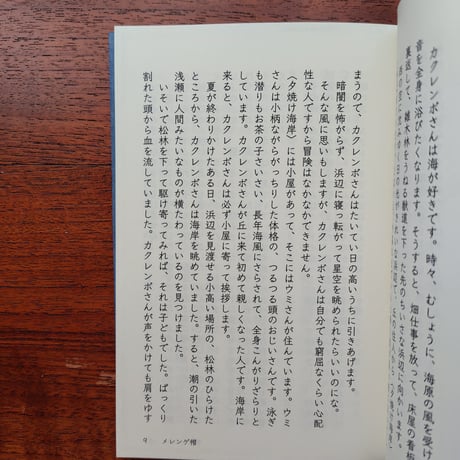 カクレンボさんは海が好きです。時々、むしょうに、海原の風を受け
音を全身に浴びたくなります。そうすると、畑仕事を放って、床屋の看板
裏返して、雑木林をうねる獣道を下った先のちいさな浜辺に向かいます。
まうので、カクレンボさんはたいてい日の高いうちに引きあげます。
暗闇を怖がらず、浜辺に寝っ転がって星空を眺められたらいいのにな。
そんな風に思いもしますが、カクレンボさんは自分でも窮屈なくらい心配
性な人ですから冒険はなかなかできません。
〈夕焼け海岸〉には小屋があって、そこにはウミさんが住んでいます。ウミ
さんは小柄ながらがっちりした体格の、つるつる頭のおじいさんです。泳ぎ
も潜りもお茶の子さいさい、長年海風にさらされて、全身こんがりざらりと
しています。カクレンボさんが丘に来て初めて親しくなった人です。海岸に
来ると、カクレンボさんは必ず小屋に寄って挨拶します。
夏が終わりかけたある日、浜辺を見渡せる小高い場所の、松林のひらけた
ところから、カクレンボさんは海岸を眺めていました。すると、潮の引いた
浅瀬に人間みたいなものが横たわっているのを見つけました。
いそいで松林を下って駆け寄ってみれば、それは子どもでした。ぱっくり
割れた頭から血を流していました。カクレンボさんが声をかけても肩をゆす
9 メレンゲ帽